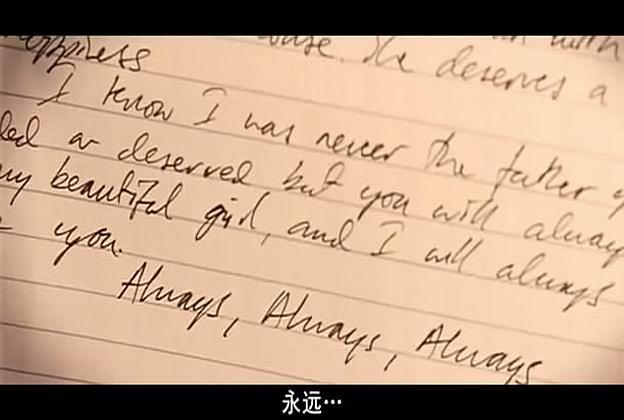 deserves a
happiness
I know I was never the father
or deserved but you will alway
my beautiful girl, and I will always
you.
Always, Always, Always
永远…